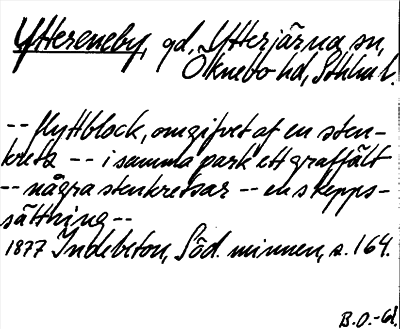 Yttereneby, gd, Ytterjärna sn,
Öknebo hd, Sthlm l.
-- flyttblock, omgifvet af en sten-
krets -- i samma park ett graffält
-- några stenkretsar -- en skepps-
sättning --
1877 Indebetou, Söd. minnen, s. 164.
B.O.-61.